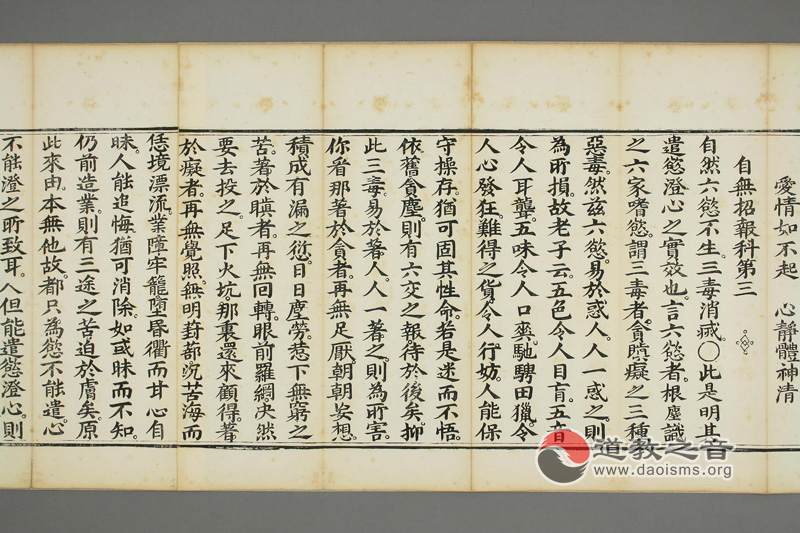 愛情如不起　心靜體神清
自無招報科第三
自然六慾不生。三毒消滅。〇此是明其
遣慾澄心之實效也。言六慾者。根塵識
之六家嗜慾。謂三毒者。貪瞋癡之三種
惡毒。然茲六慾。易於惑人。人一惑之。則
為所損。故老子云。五色令人目盲。五音
令人耳聾。五味令人口爽。馳騁田獵。令
人心發狂。難得之貨。令人行妨。人能保
守操存。猶可固其性命。若是迷而不悟。
依舊貪塵。則有六交之報。待於後矣。抑
此三毒。易於著人。人一著之。則為所害。
你看那著於貪者。再無足厭。朝朝妄想。
積成有漏之愆。日日塵勞。惹下無窮之
苦。著於瞋者。再無回轉。眼前羅網。決然
要去投之。足下火坑。那裏還來顧得。著
於癡者。再無覺照。無明葑蔀。沉苦海而
恁境漂流。業障牢籠。墮昏衢而甘心自
昧。人能追悔。猶可消除。如或昧而不知。
仍前造業。則有三途之苦。迫於膚矣。原
此來由。本無他故。都只為慾不能遣。心
不能澄之所致耳。人但能遣慾澄心。則
道教之音
www.daoisms.org